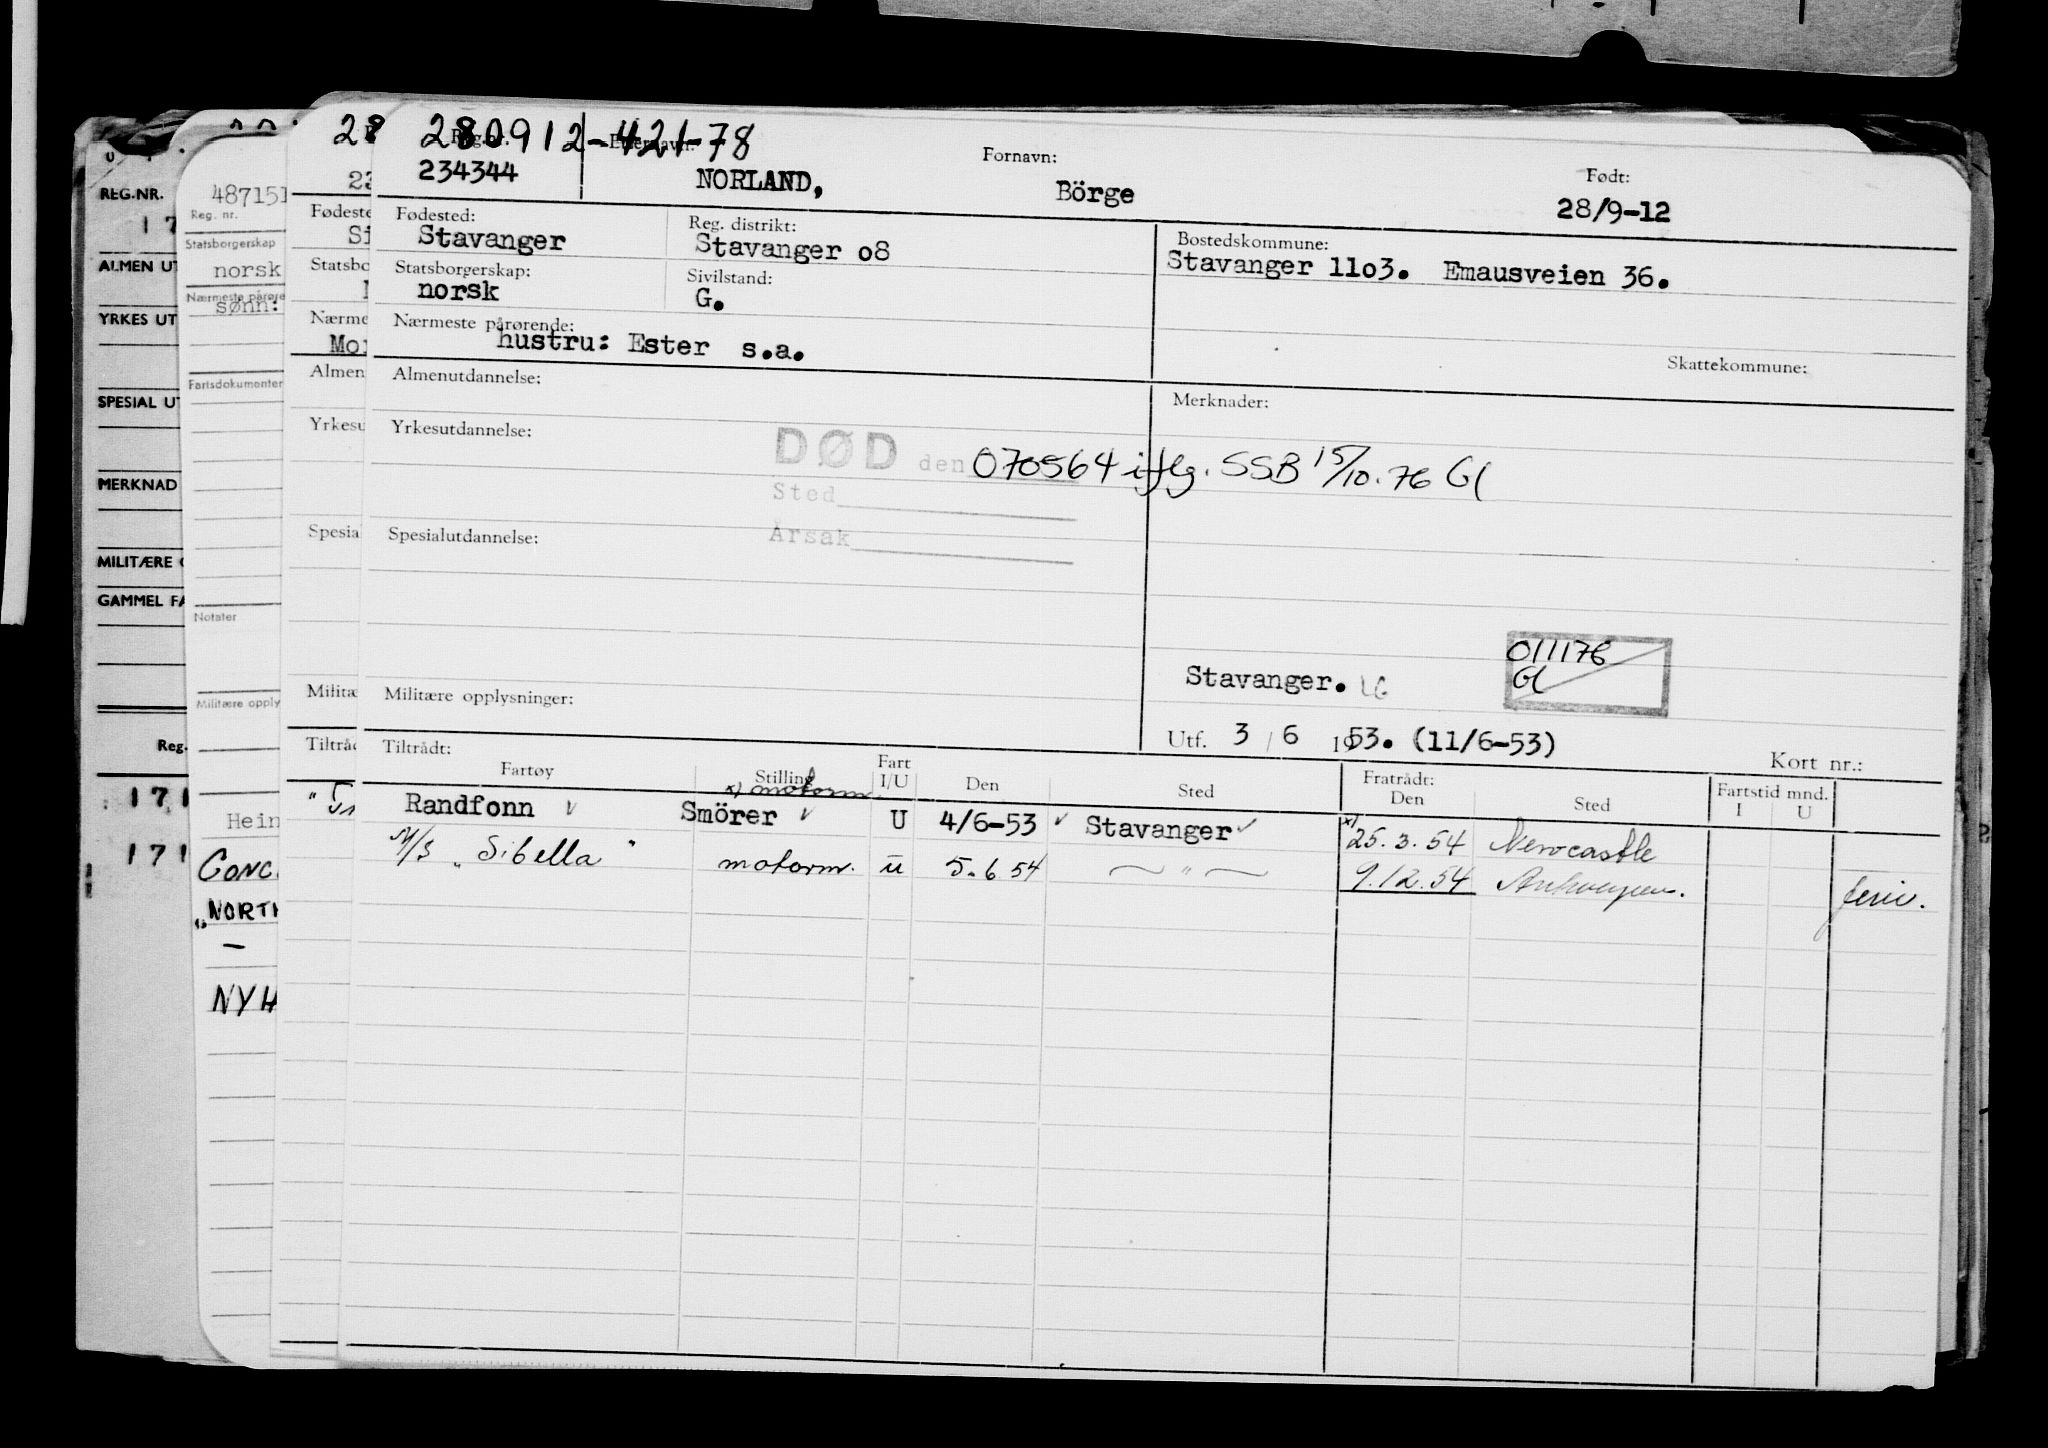 280912-421-78
Reg. nr. Etternavn: Fornavn: Født:
234344 NORLAND, Börge 28/9-12
Fødested: Reg. distrikt: Bostedskommune:
Stavanger Stavanger o8 Stavanger 11o3. Emausveien 36.
Statsborgerskap: Sivilstand:
norsk G.
Nærmeste pårørende: Skattekommune:
hustru: Ester s.a.
Almenutdannelse: Merknader:
Yrkesutdannelse:
DØD den 070564 iflg. SSB 15/10.76 Gl
Sted
Spesialutdannelse: Årsak
011176
Gl
Stavanger. LG
Militære opplysninger:
Utf. 3 / 6 1953. (11/6-53) Kort nr.:
Tiltrådt: Fratrådt: Fartstid mnd.
Fartøy Stilling Fart I/U Den Sted Den Sted I U
x) motorm.
Randfonn v Smörer v U 4/6-53 v Stavanger v x) 25.3.54 Newcastle
M/S "Sibella" motorm. u 5.6 54 — " — 9.12.54 Antwerpen. ferie.
REG.NR.
17
ALMEN UT
YRKES UT
SPESIAL UT
MERKNAD
MILITÆRE
GAMMEL FA
Reg.
171
171
487151
Reg. nr.
Statsborgerskap
norsk
Nærmeste pårøre
sønn:
Fartsdokumenter
Notater
Militære opply
Hein
CONC
"NORTH
—
NYH
28
23
Fødeste
St
Statsbo
Nærme
Mor
Almen
Yrkesu
Spesial
Militæ
Tiltråd